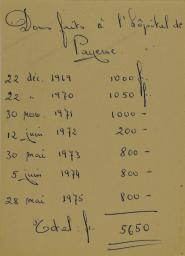 Dons faits à l'hôpital de
Payerne
22 déc. 1969 1000 fr.
22 " 1970 1050 fr.
30 nov. 1971 1000 -
12 juin 1972 200 -
30 mai 1973 800 -
5 juin 1974 800 -
28 mai 1975 800 -
Total: fr. 5650